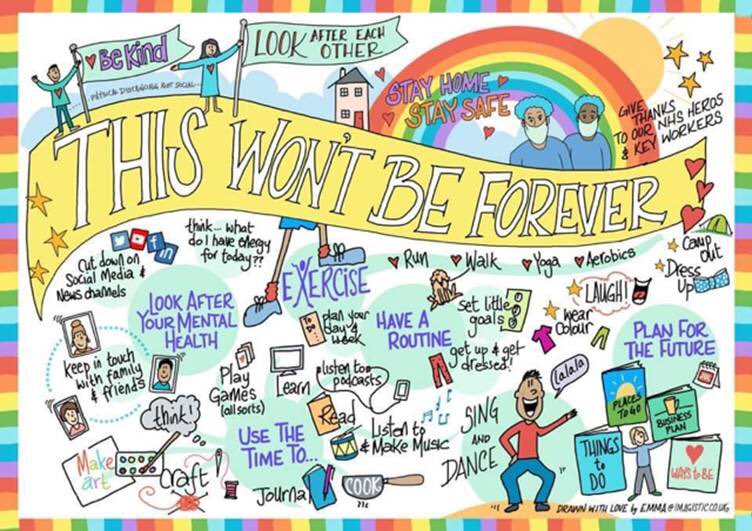 Be Kind
LOOK AFTER EACH
OTHER
PHYSICAL DISTANCING NOT SOCIAL...
STAY HOME
STAY SAFE
GIVE THANKS
TO OUR NHS HEROS
& KEY WORKERS
THIS WON'T BE FOREVER
Cut down on
Social Media &
News channels
think... what
do I have energy
for today??
EXERCISE
Run
Walk
Yoga
Aerobics
Camp
out
Dress
Up
LOOK AFTER
YOUR MENTAL
HEALTH
plan your
day &
week
HAVE A
ROUTINE
Set little
goals
get up & get
dressed!
LAUGH!
wear
Colour
PLAN FOR
THE FUTURE
Keep in touch
with family
& friends
Play
Games
(all sorts)
Learn
listen to
podcasts
think!
Read
Listen to
& Make Music
USE THE
TIME TO...
SING
AND
DANCE
lalala
PLACES
TO GO
BUSINESS
PLAN
THINGS
to
DO
WAYS to BE
Make
art
Craft
Journal
COOK
DRAWN WITH LOVE by EMMA @IMAGISTIC.CO.UK